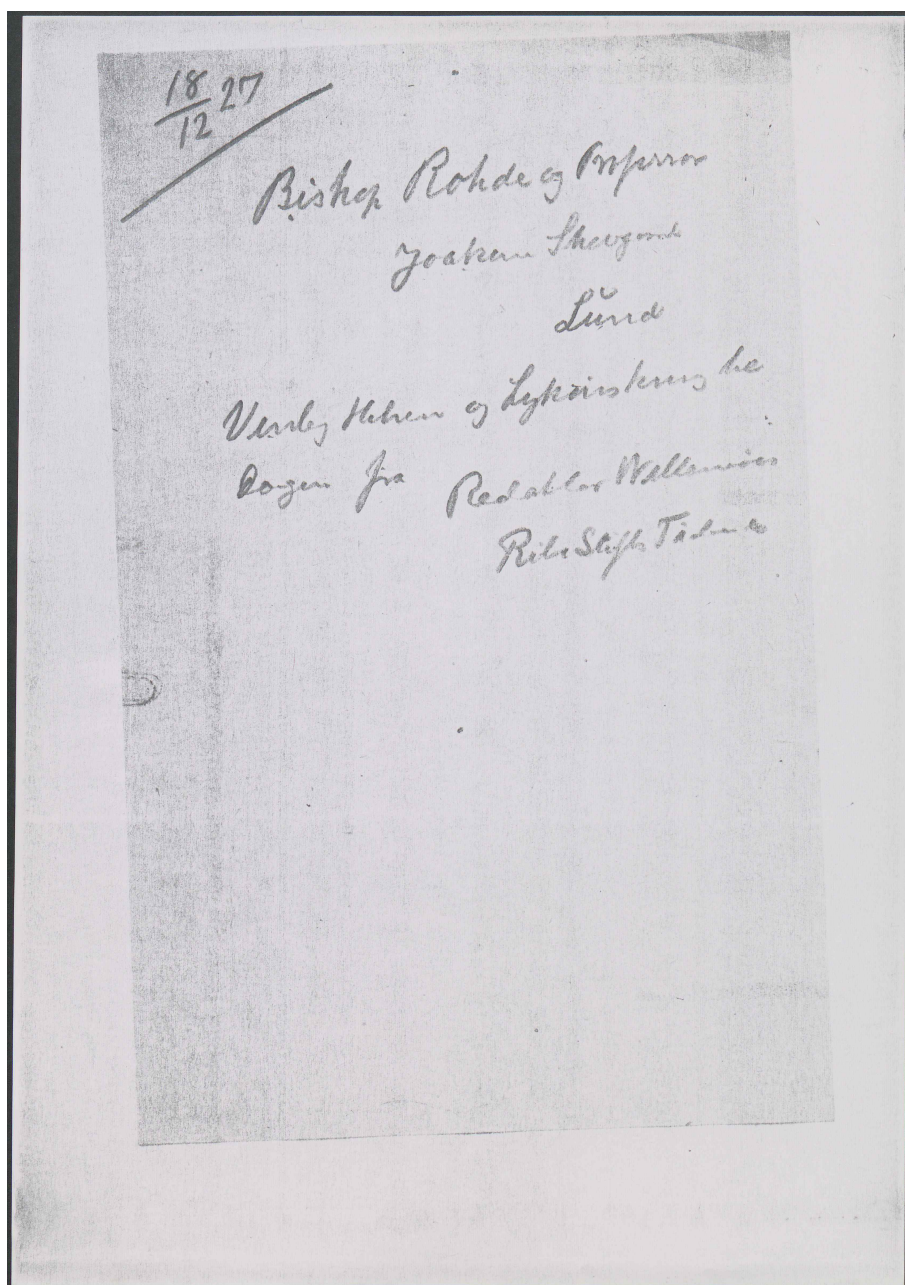 18/12 27
Biskop Rohde og Professor
Joakem Skovgard
Lund
Venlig Hilsen og Lykønskning
Dagen fra Redaktør
Ribe Stifts Tidende